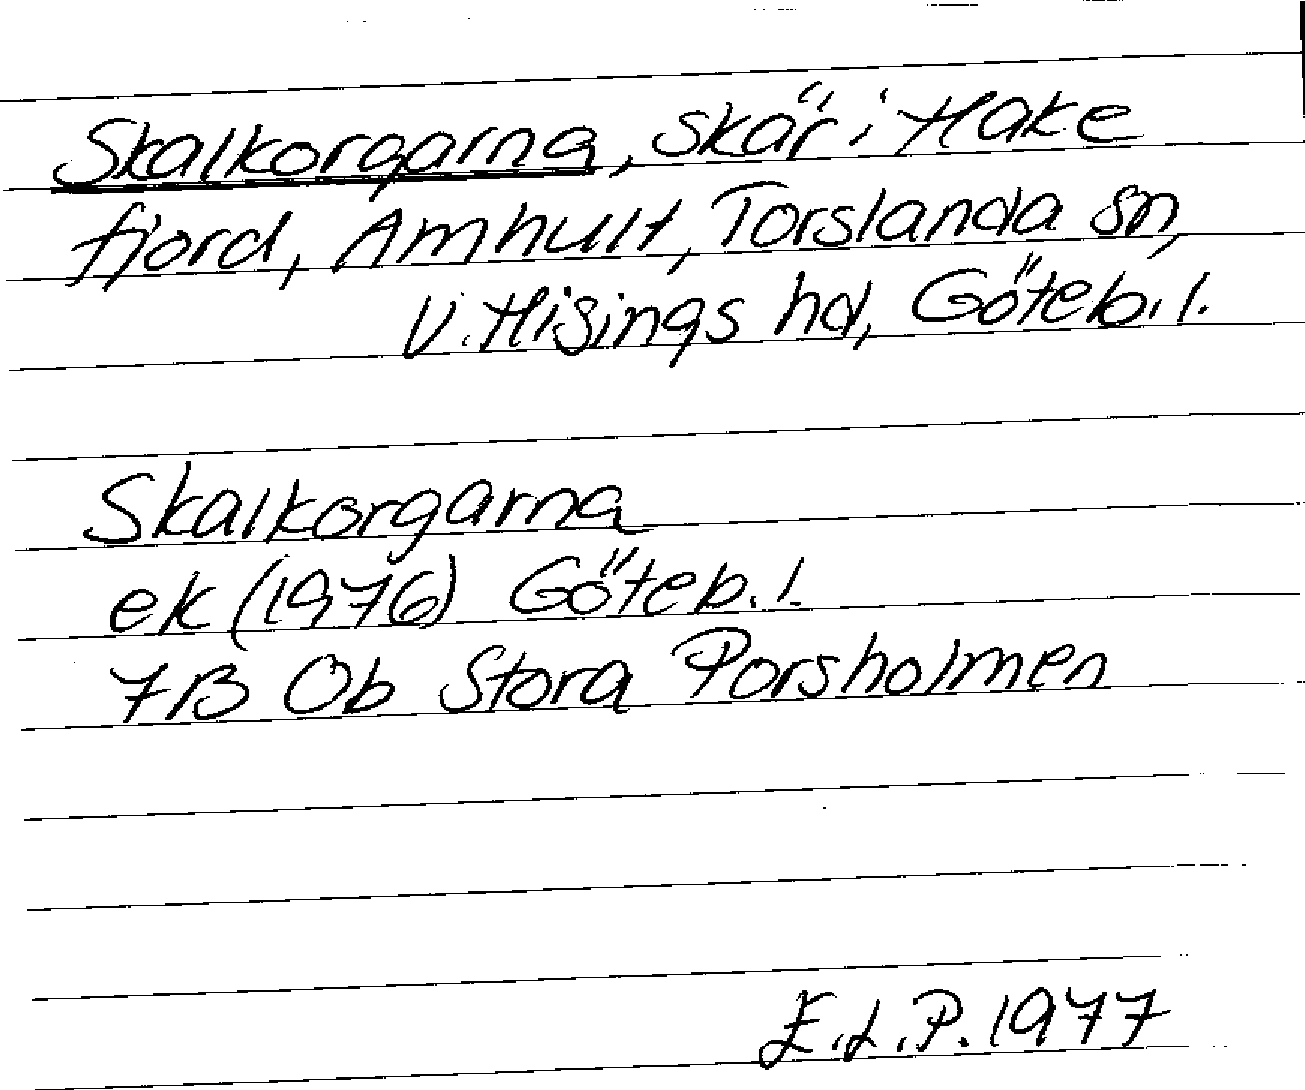 Skalkorgarna, skär i Hake
fjord, Amhult, Torslanda sn,
V. Hisings hd, Göteb. l.
Skalkorgarna
ek (1976) Göteb. l.
7B Ob Stora Porsholmen
E.L.P. 1977